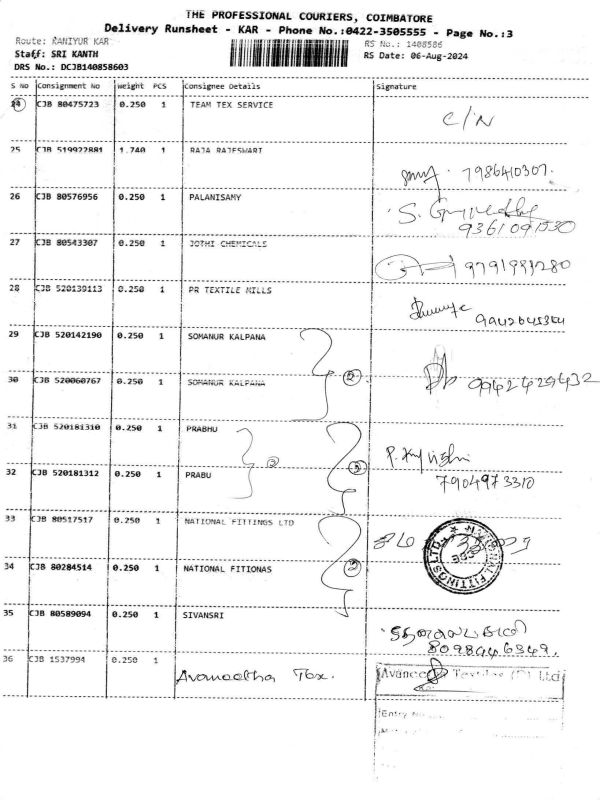 THE PROFESSIONAL COURIERS, COIMBATORE
Delivery Runsheet - KAR - Phone No.:0422-3505555 - Page No.:3
Route: RANIYUR KAR RS No.: 1408586
Staff: SRI KANTH RS Date: 06-Aug-2024
DRS No.: DCJB140858603
S No Consignment No Weight PCS Consignee Details Signature
24 CJB 80475723 0.250 1 TEAM TEX SERVICE C/N
25 CJB 519922881 1.740 1 RAJA RAJESWARI
7986410307.
26 CJB 80576956 0.250 1 PALANISAMY S.
9361091530
27 CJB 80543307 0.250 1 JOTHI CHEMICALS 9791981280
28 CJB 520139113 0.250 1 PR TEXTILE MILLS
29 CJB 520142190 0.250 1 SOMANUR KALPANA
30 CJB 520060767 0.250 1 SOMANUR KALPANA 2 9942429432
31 CJB 520181310 0.250 1 PRABHU
2 3 7904973310
32 CJB 520181312 0.250 1 PRABU
33 CJB 80517517 0.250 1 NATIONAL FITTINGS LTD
NATIONAL FITTINGS LTD
34 CJB 80284514 0.250 1 NATIONAL FITIONAS 2
35 CJB 80589094 0.250 1 SIVANSRI
8098446349.
36 CJB 1537994 0.250 1 Avaneetha Tex.
Textiles (P) Ltd
Entry No